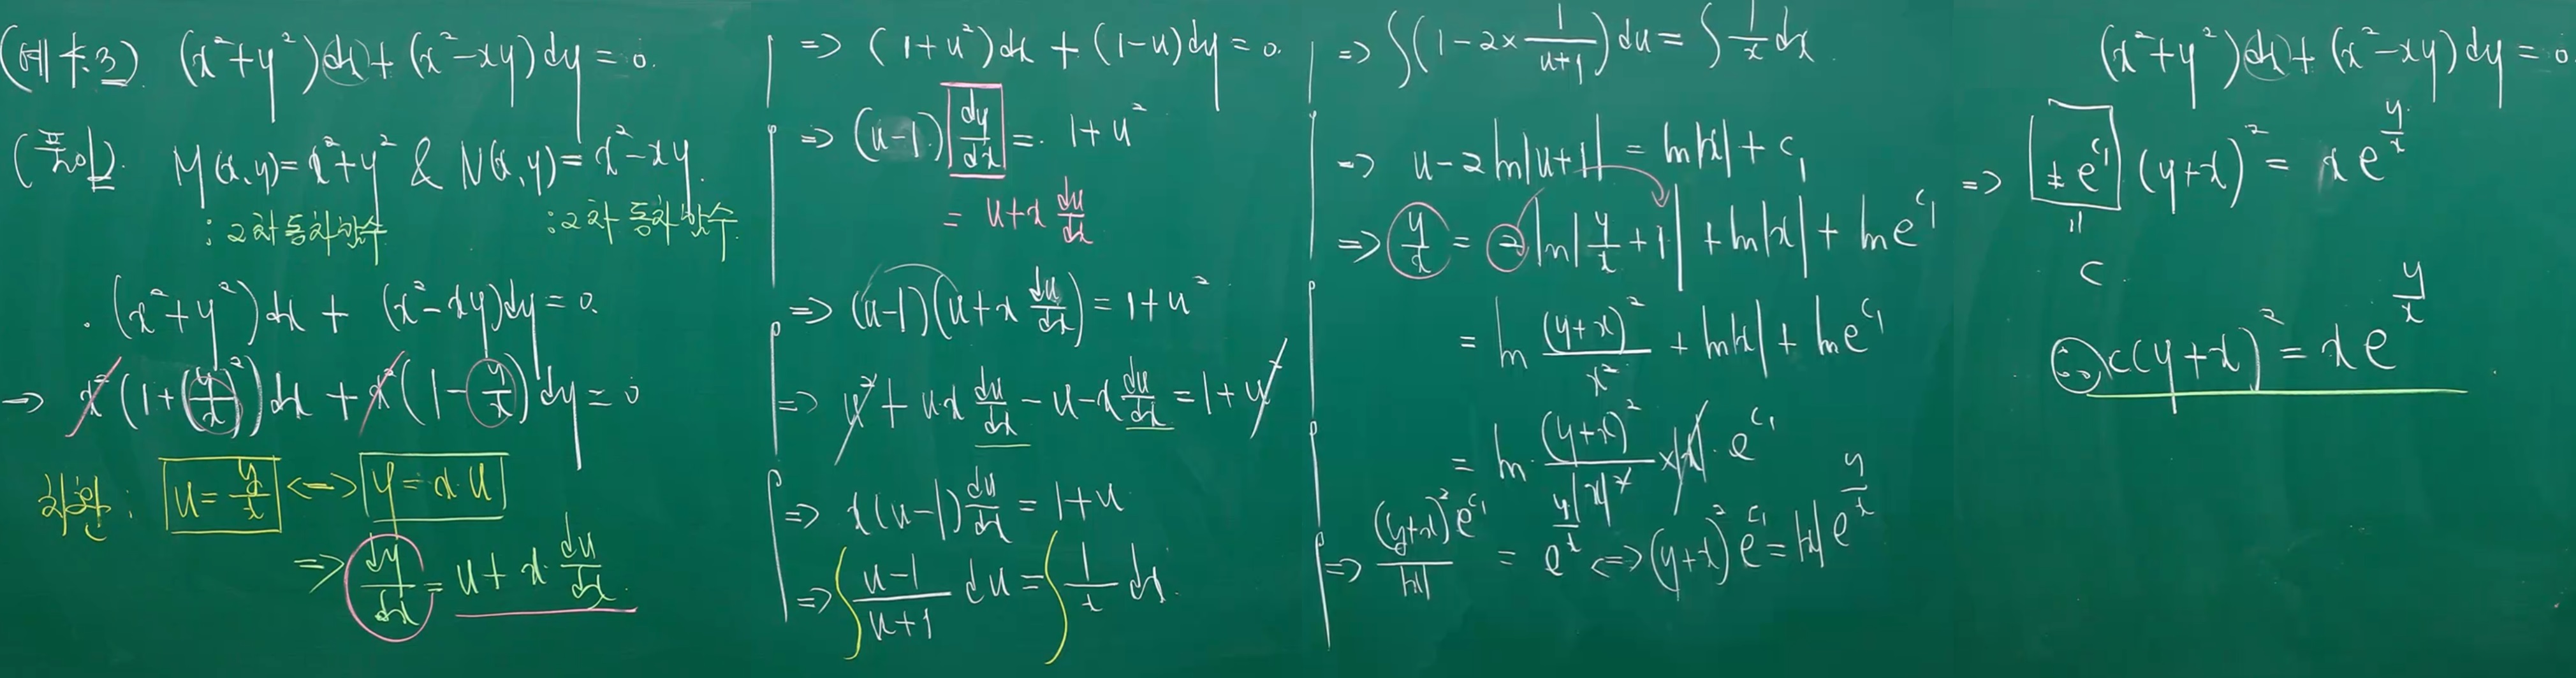 (예 4.3) (x²+y²)dx + (x²-xy)dy = 0.
(풀이). M(x,y)=x²+y² & N(x,y)=x²-xy.
: 2차 동차함수 : 2차 동차함수
. (x²+y²)dx + (x²-xy)dy = 0.
→ x²(1+(y/x)²)dx + x²(1-y/x)dy = 0
치환 : u = y/x <-> y = x·u
=> dy/dx = u + x·du/dx.
=> (1+u²)dx + (1-u)dy = 0.
=> (u-1) dy/dx = 1+u²
= u+x du/dx
=> (u-1)(u+x du/dx) = 1+u²
=> u² + ux du/dx - u - x du/dx = 1+u²
=> x(u-1) du/dx = 1+u
=> ∫ (u-1)/(u+1) du = ∫ 1/x dx.
=> ∫(1-2× 1/(u+1)) du = ∫ 1/x dx.
=> u-2ln|u+1| = ln|x| + c₁
=> y/x = 2 ln|y/x + 1| + ln|x| + ln e^c₁
= ln (y+x)²/x² + ln|x| + ln e^c₁
= ln (y+x)²/|x|² × |x| · e^c₁
=> (y+x)² e^c₁/|x| = e^(y/x) <=> (y+x)² e^c₁ = |x| e^(y/x)
(x²+y²)dx + (x²-xy)dy = 0
=> ±e^c₁ (y+x)² = x e^(y/x)
=
c
∴ c(y+x)² = x e^(y/x)